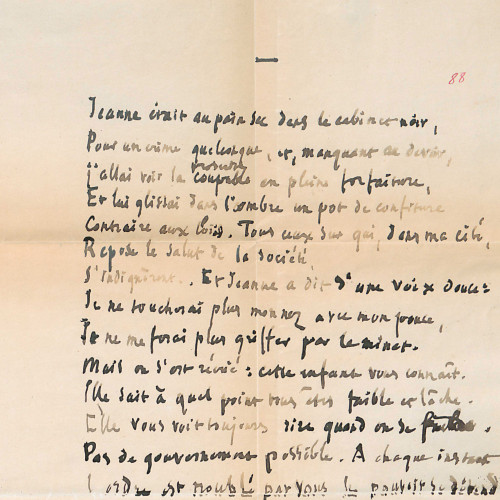 88
Jeanne était au pain sec dans le cabinet noir,
Pour un crime quelconque, et, manquant au devoir,
J'allai voir la proscrite coupable en pleine forfaiture,
Et lui glissai dans l'ombre un pot de confiture
Contraire aux lois. Tous ceux sur qui, dans ma cité,
Repose le salut de la société
S'indignèrent. Et Jeanne a dit d'une voix douce:
Je ne toucherai plus mon nez avec mon pouce,
Je ne me ferai plus griffer par le minet.
Mais on s'est récrié: cette enfant vous connaît.
Elle sait à quel point vous êtes faible et lâche.
Elle vous voit toujours rire quand on se fâche.
Pas de gouvernement possible. A chaque instant
L'ordre est troublé par vous le pouvoir se détend